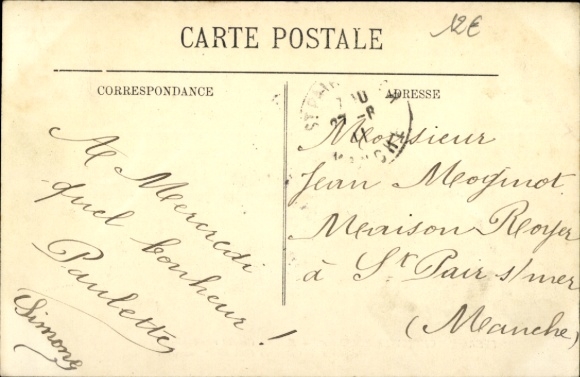 12€
CARTE POSTALE
CORRESPONDANCE
ADRESSE
A Mercredi
quel bonheur !
Paulette
Simone
Monsieur
Jean Moginot
Maison Royer
à St Pair s/mer
(Manche)